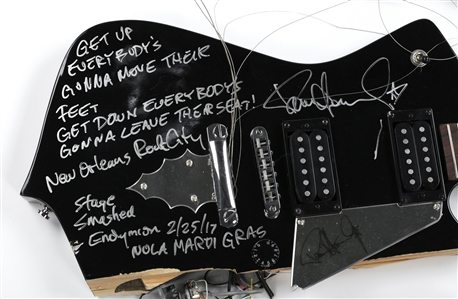 GET UP
EVERYBODY'S
GONNA MOVE THEIR
FEET
GET DOWN EVERYBODYS
GONNA LEAVE THEIR SEAT!
New Orleans Rock City
Stage
Smashed
Endymion 2/25/17
NOLA MARDI GRAS